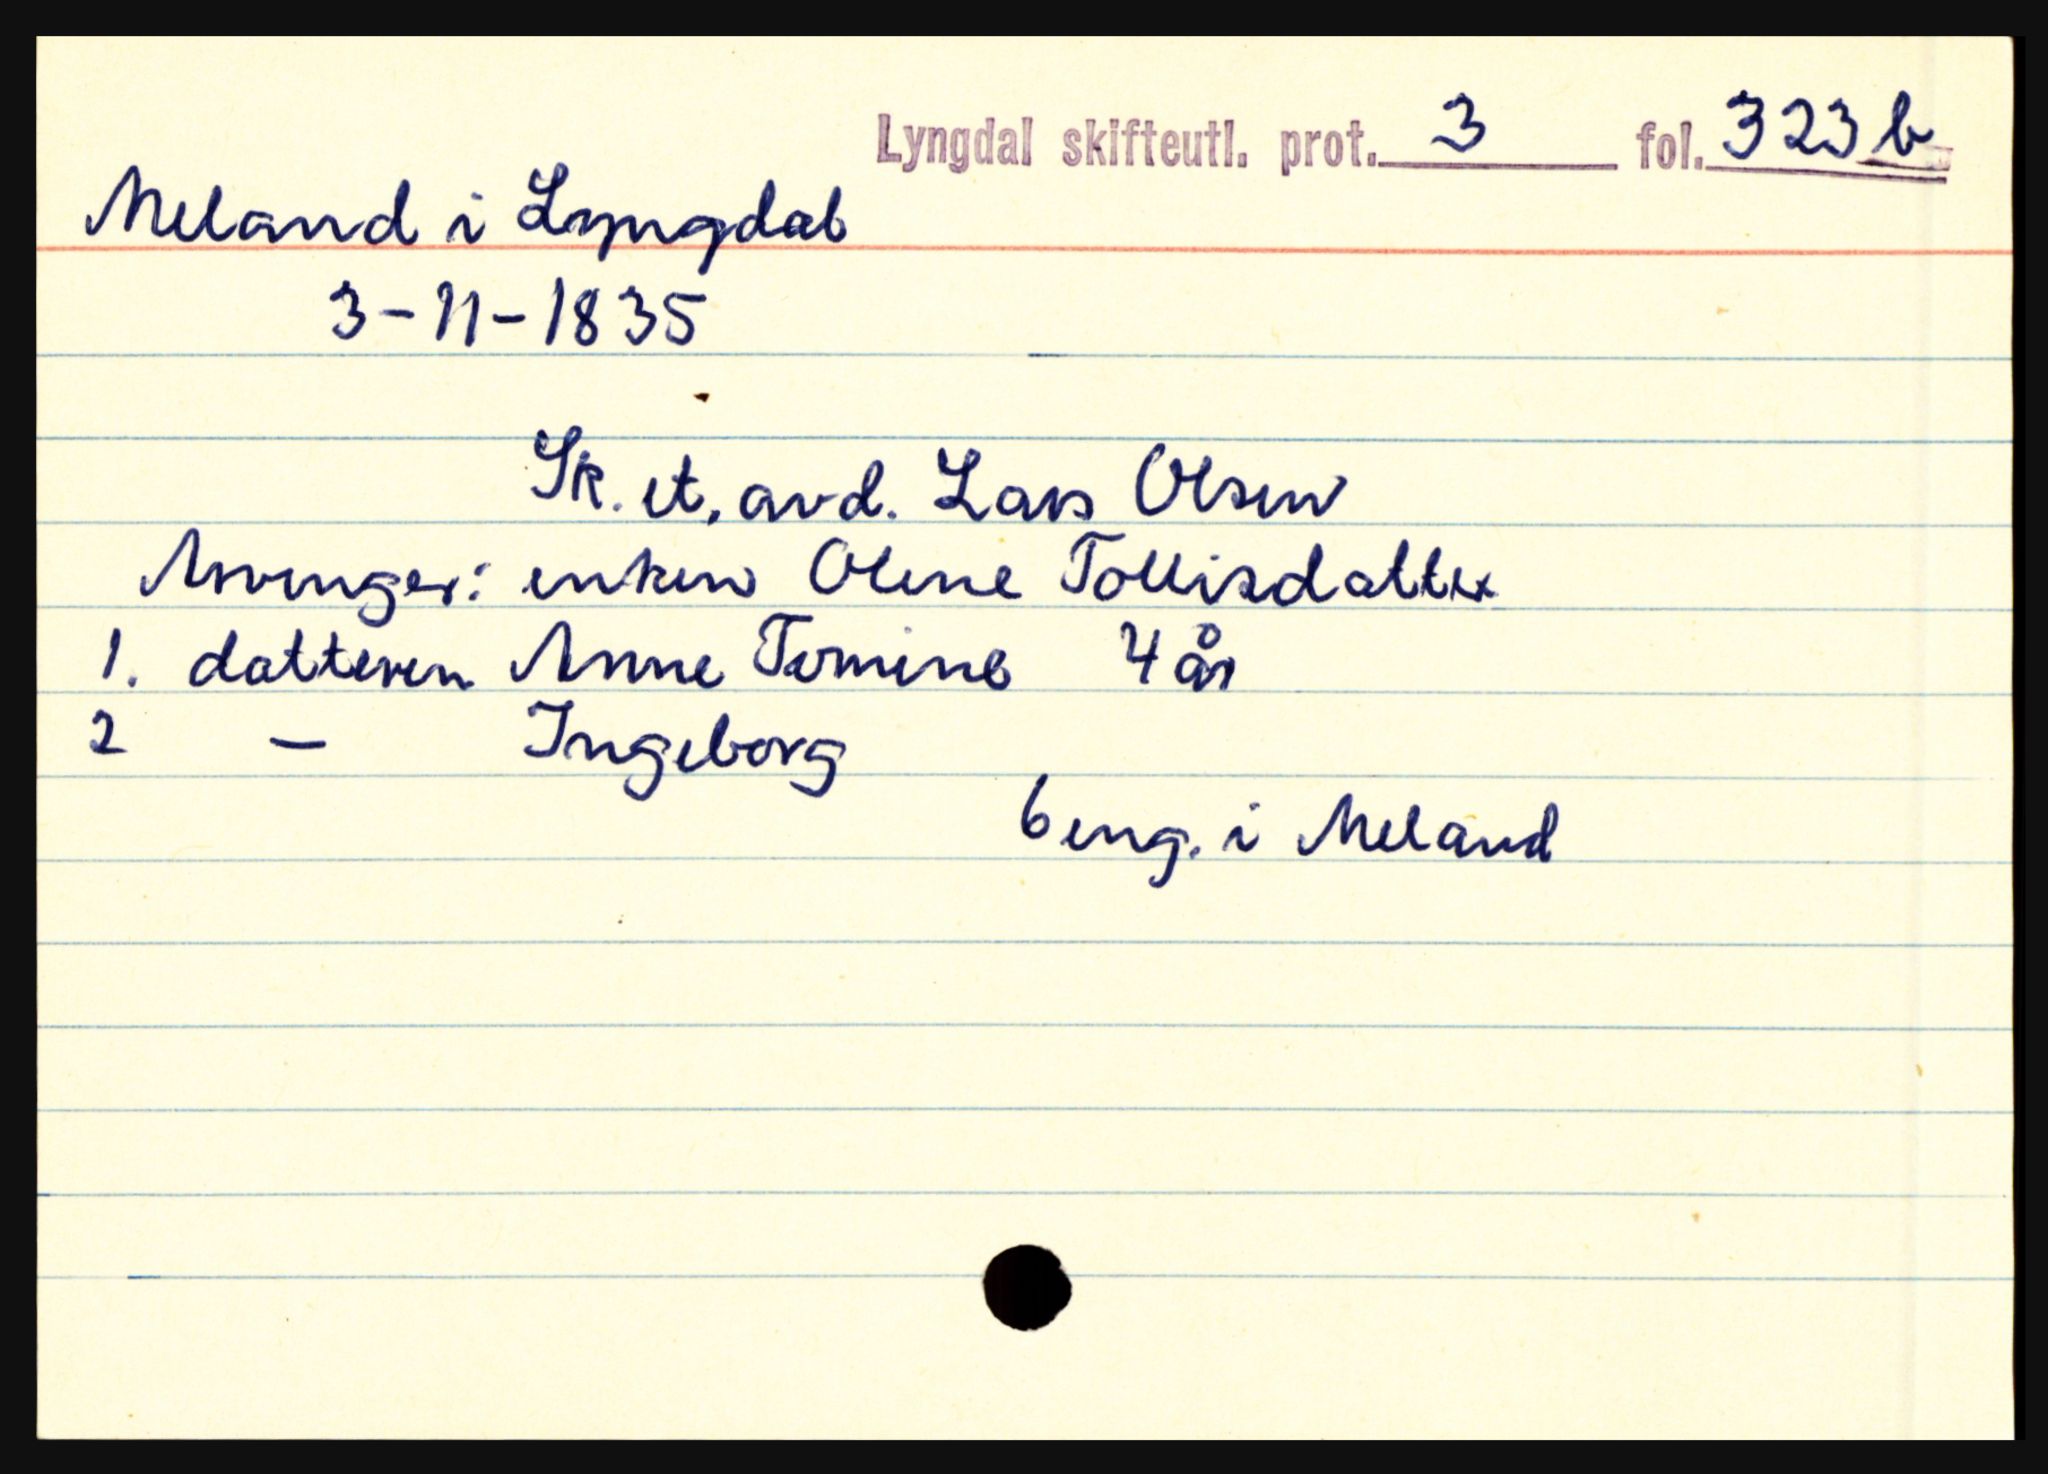 Lyngdal skifteutl. prot. 3 fol. 323 b
Meland i Lyngdal
3-11-1835
Sk. et. avd. Lars Olsen
Arvinger: enken Olene Tollisdatter
1. datteren Anne Tomine 4 år
2 — Ingeborg
beng. i Meland